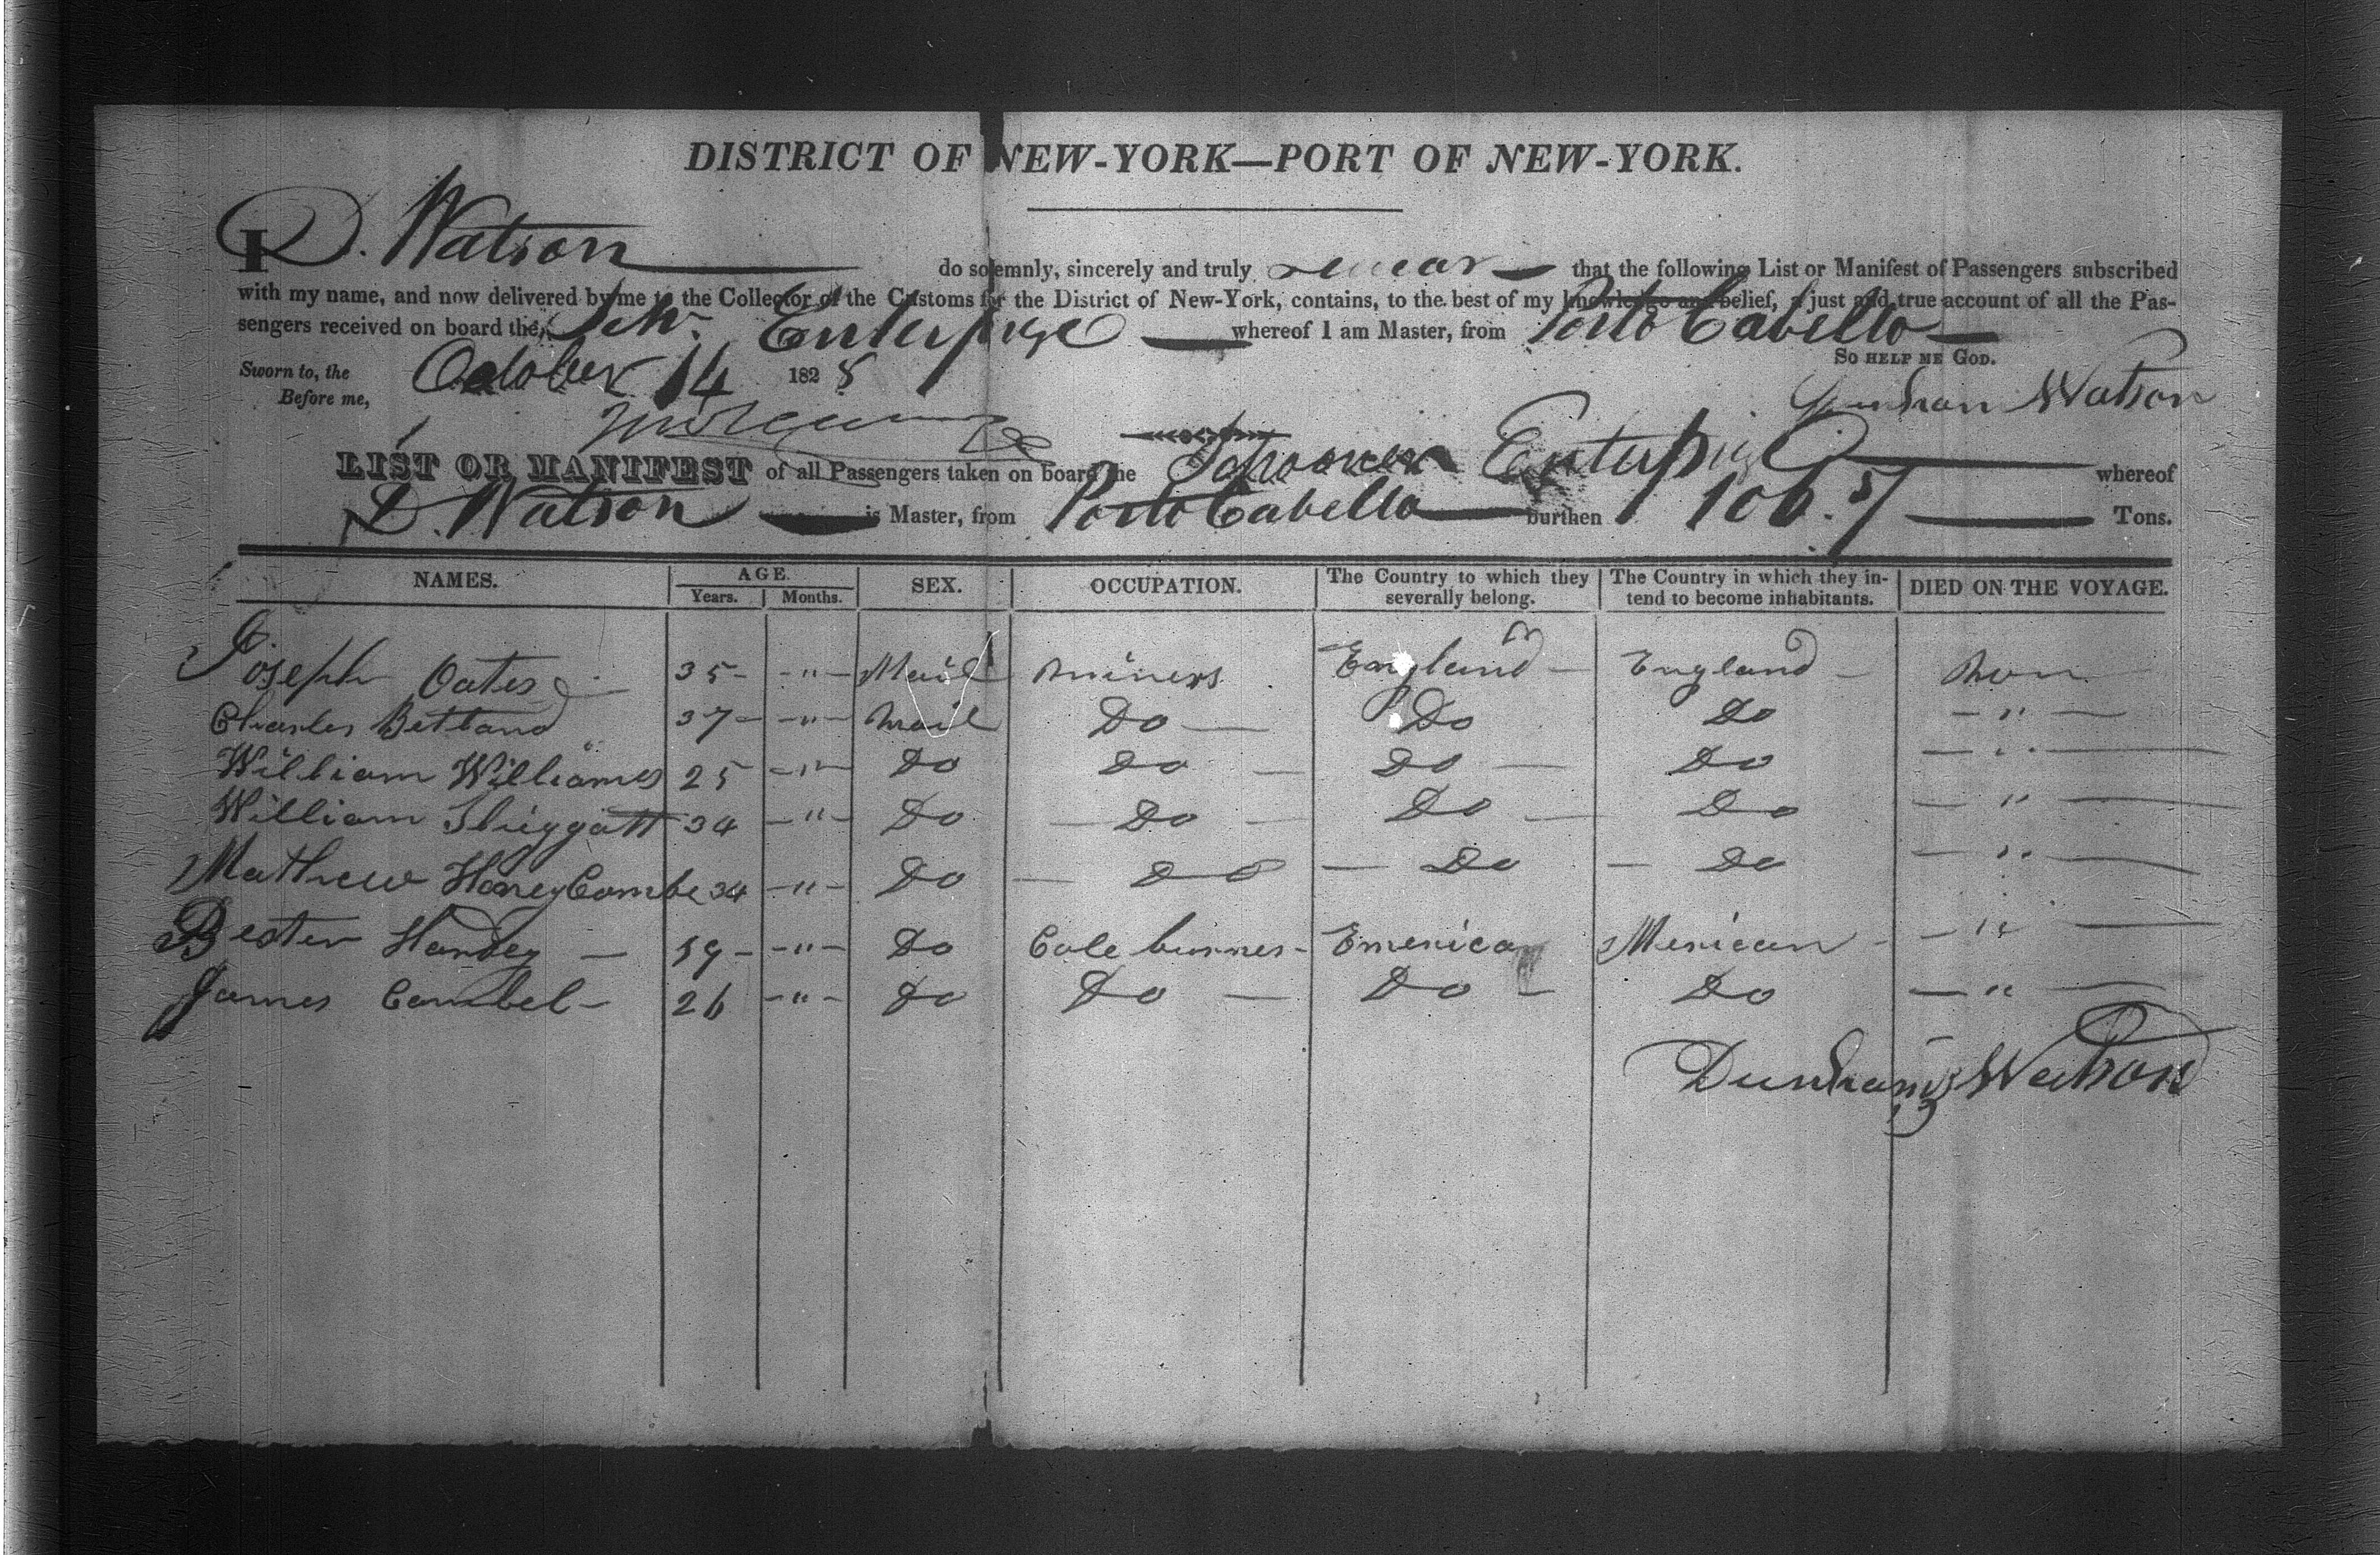 DISTRICT OF NEW-YORK—PORT OF NEW-YORK.
I D. Watson do solemnly, sincerely and truly swear that the following List or Manifest of Passengers subscribed
with my name, and now delivered by me to the Collector of the Customs for the District of New-York, contains, to the best of my knowledge and belief, a just and true account of all the Pas-
sengers received on board the Schr. Enterprize whereof I am Master, from Porto Cabello
So help me God.
Sworn to, the October 14 1828
Before me,
Dunham Watson
LIST OR MANIFEST of all Passengers taken on board the Schooner Enterprize whereof
D. Watson is Master, from Porto Cabello burthen 106. Tons.
NAMES. AGE. Years. Months. SEX. OCCUPATION. The Country to which they severally belong. The Country in which they intend to become inhabitants. DIED ON THE VOYAGE.
Joseph Oates 35 - " - Mail miners England England Non
Charles Betland 37 - " - Mail Do Do Do - " -
William Williames 25 - " - Do Do Do Do - " -
William 34 - " - Do Do Do Do - " -
Mathew HoneyCombe 34 - " - Do Do Do Do - " -
Bester Handey 19 - " - Do Cole burner Emerica Merican - " -
James Cambel 26 - " - Do Do Do Do - " -
Dunham Watson